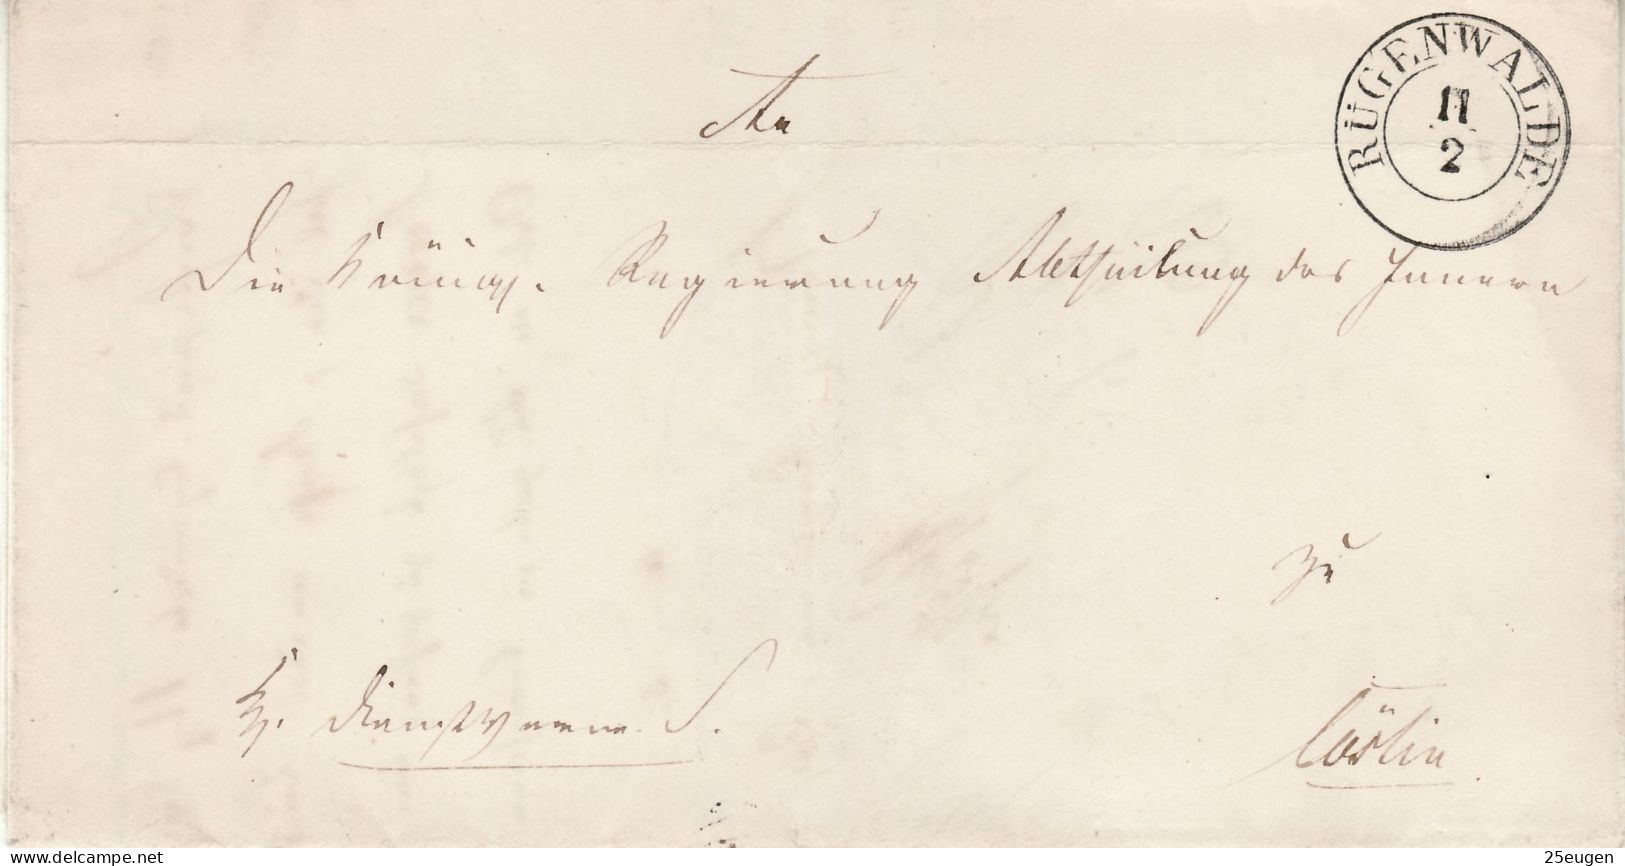 RÜGENWALDE
11
2
An
Die Königl. Regierung Abtheilung des Innern
zu
Cöslin
K. Dienstsache
www.delcampe.net
25eugen